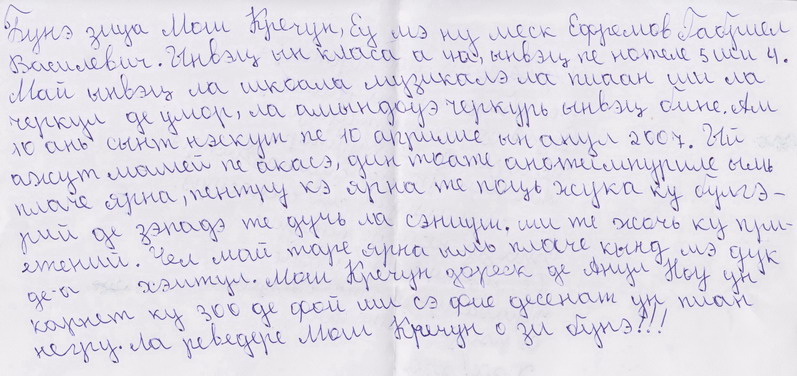 Бунэ зиуа Мош Кречун, Еу мэ ну меск Ефремов Габриел
Василевич. Ынвэц ын класа а на, ынвэц пе нотеле 5 ши 4.
Май ынвэц ла школа музикалэ ла пиаан ши ла
черкул де умор, ла амындоуэ черкурь ынвэц бине. Ам
10 ань сынт нэскут пе 10 априлие ын анул 2007. Ый
ажут мамей пе акасэ, дин тоате анотимпуриле ымь
плаче ярна, пентру кэ ярна те поць жука ку булгэ-
рий де зэпадэ те дучь ла сэниуш. ши те жочь ку при-
етений. Чел май таре ярна ымь плаче кынд мэ дук
де-а хэитул. Мош Кречун дореск де Анул Ноу ун
карнет ку 300 де фой ши сэ фие десенат ун пиан
негру. Ла реведере Мош Кречун о зи бунэ!!!